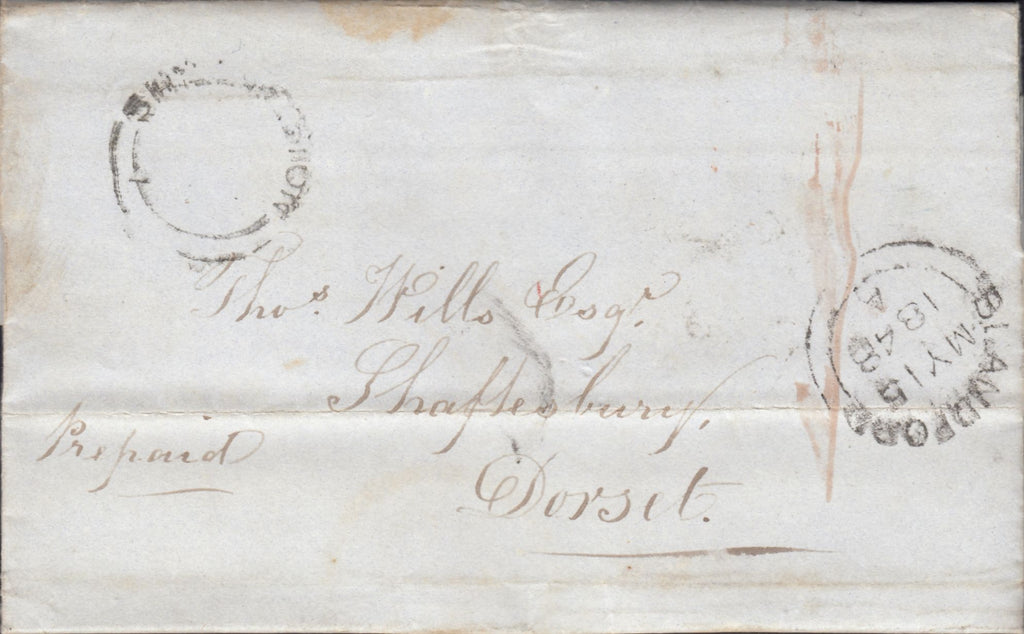 Thos. Wills Esqr.
Shaftesbury,
Prepaid
Dorset.
BLANDFORD
A
MY 15
1848